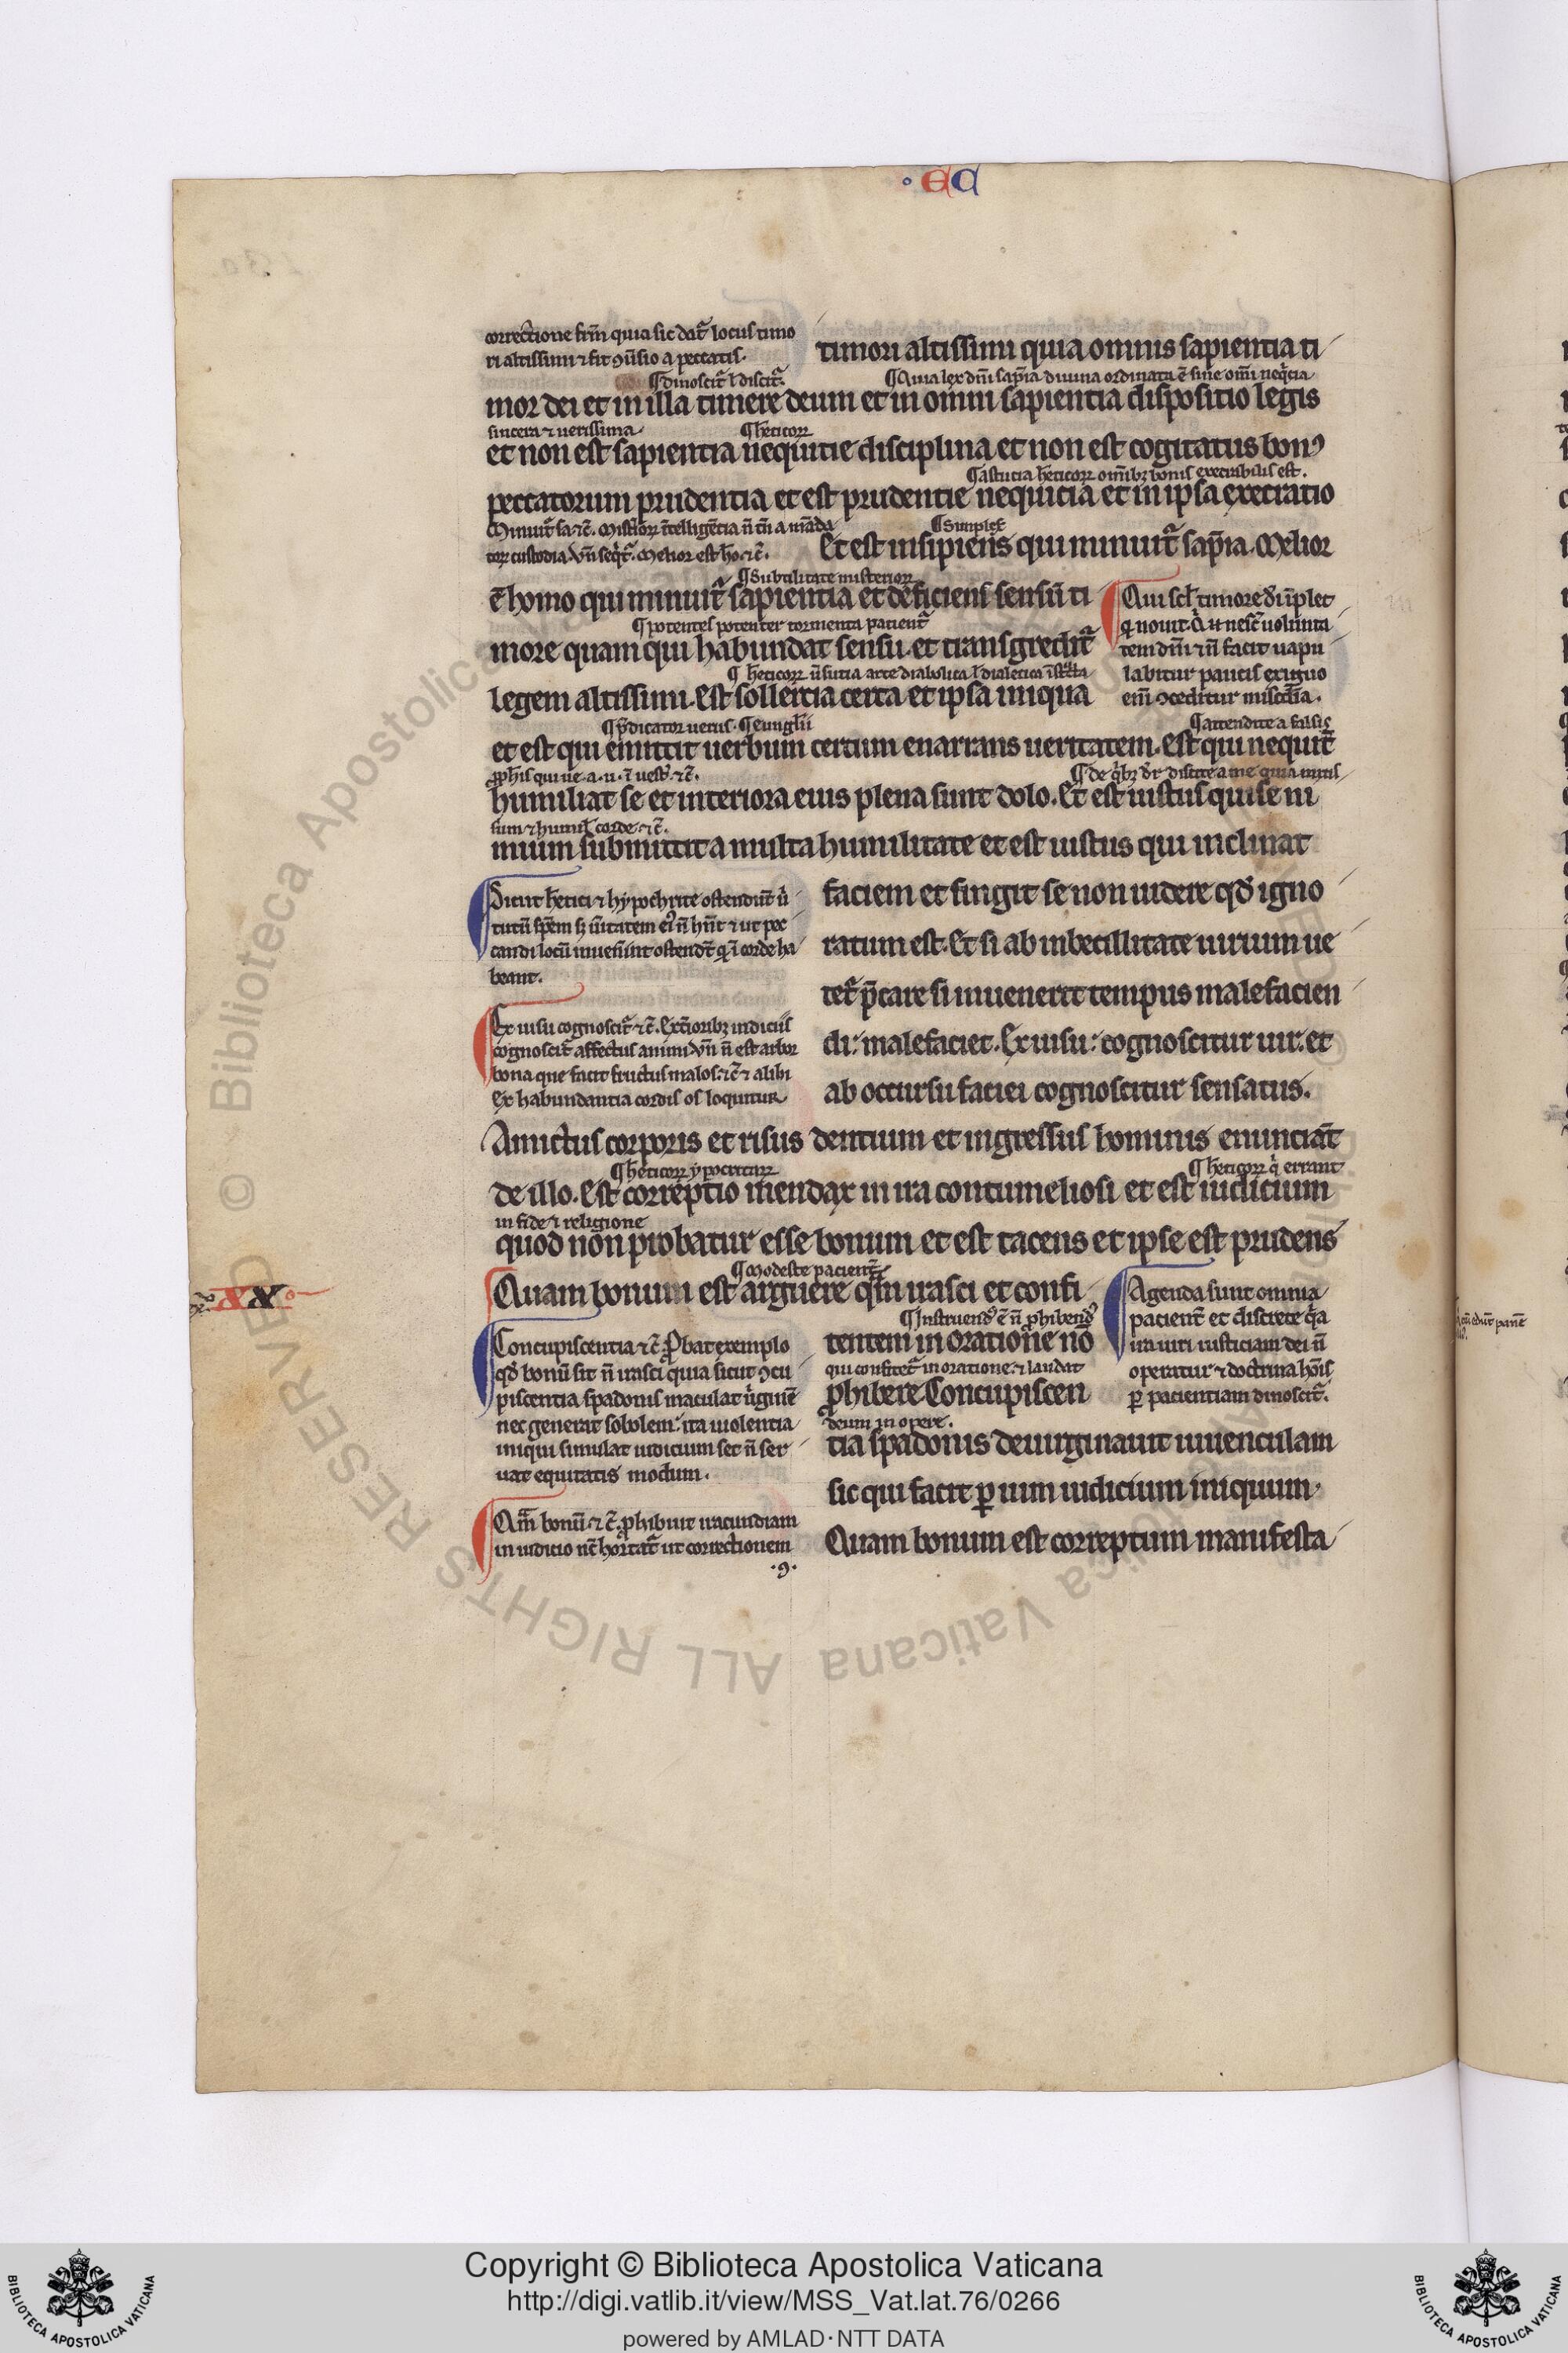 EC
correctione frm̄ quia sic dat᷑ locus timo
ri altissimi ⁊ fit ꝯūsio a peccatis.
timori altissimi quia omnis sapientia ti
¶ dinoscit᷑ ł discit᷑.
¶ Quia lex dn̄i sap̄ia diuina ordinata ē sine om̄i neq̇cia
mor dei et in illa timere deum et in omni sapientia dispositio legis
sincera ⁊ uerissima
¶ h̄eticoꝝ
et non est sapientia nequitie disciplina et non est cogitatus bonꝰ
¶ astutia h̄eticoꝝ om̄ibꝫ bonis execrabilis est.
peccatorum prudentia et est prudentie nequicia et in ipsa execratio
Minuit᷑ sa. ⁊c̄. Mist̄ioꝝ ītelligētia n̄ tn̄ a mādа
toꝝ custodia. vn̄ seqͥt᷑. Melior est hō. ⁊c̄.
¶ Simplex
Et est insipiens qui minuit᷑ sap̄ia. Melior
¶ Subtilitate misterioꝝ
ē homo qui minuit᷑ sapientia et deficiens sensū ti
¶ potentes potenter tormenta patient᷑
more quam qui habundat sensu. et transgredit᷑
¶ h̄eticoꝝ ūsutia arte diabolica ł dialetica īstr̄cta
legem altissimi. Est sollertia certa et ipsa iniqua
Qui scł timore d̄i īplet
q̇ nouit. Qͥ u̇ nesc̄ uolunta
tem dn̄i ⁊ n̄ facit uapu
labitur paucis exiguo
em̄ ꝯceditur misc̄dia.
¶ p̄dicator uerus. ¶ euangłii
¶ attendite a falsis
et est qui emittit uerbum certum enarrans ueritatem. Est qui nequit᷑
ꝓph̄is qui ue. a. u. ī uest᷑. ⁊c̄.
¶ de qͥbꝫ dr̄ discite a me quia mitis
humiliat se et interiora eius plena sunt dolo. Et est iustus qui se ni
sum ⁊ humil᷑ corde. ⁊c̄.
mium submittit a multa humilitate et est iustus qui inclinat
Sicut h̄etici ⁊ hypochrite ostendūt uͥ
tutū spēm sꝫ ūitatem eiꝰ n̄ hn̄t ⁊ ut pec
candi locū inuen̄int ostendūt q̇ ī corde ha
beant.
faciem et fingit se non uidere qd̄ igno
ratum est. Et si ab inbecillitate uirium ue
tet᷑ p̄care si inuenerit tempus malefacien
Ex uisu cognoscit᷑ ⁊c̄. Extioribꝫ indiciis
cognoscit᷑ affectus animi vn̄ n̄ est arbor
bona que facit fructus malos. ⁊c̄ ⁊ alibi
Ex habundantia cordis os loquitur
di: malefaciet. Ex uisu: cognoscitur uir. et
ab occursu faciei cognoscitur sensatus.
Amictus corporis et risus dentium et ingressus hominis enunciāt
¶ h̄eticoꝝ ypocritaꝝ
¶ h̄eticoꝝ qͥ errant
de illo. Est correptio mendax in ira contumeliosi et est iudicium
in fide ⁊ religione
quod non probatur esse bonum et est tacens et ipse est prudens
XXº
¶ Modeste pacient᷑
Quam bonum est arguere qm̄ irasci et confi
¶ Instruendꝰ ē n̄ ꝓhibendꝰ
tentem in oratione nō
qui confitet᷑ in oratione. ⁊ laudat
ꝓhibere Concupiscen
deum in opere.
tia spadonis deuirginauit iuuenculam
Agenda sunt omnia
pacient᷑ et discrete qͥa
ira uiri iusticiam dei n̄
operatur ⁊ doctrina hōis
ꝑ pacientiam dinoscit᷑.
Concupiscentia ⁊c̄ Ꝓbat exemplo
qd̄ bonū sit n̄ irasci quia sicut ꝯcu
piscentia spadonis maculat uͥginē
nec generat sobolem: ita uiolentia
iniqui simulat iudicium set n̄ ser
uat equitatis modum.
sic qui facit ꝑ uim iudicium iniquum.
Qm̄ bonū. ⁊c̄. ꝓhibuit iracundiam
in iudicio nc̄ hortat᷑ ut correctionem
.9.
Quam bonum est correptum manifesta
© Biblioteca Apostolica Vaticana ALL RIGHTS RESERVED
Copyright © Biblioteca Apostolica Vaticana
http://digi.vatlib.it/view/MSS_Vat.lat.76/0266
powered by AMLAD·NTT DATA
BIBLIOTECA APOSTOLICA VATICANA
BIBLIOTECA APOSTOLICA VATICANA